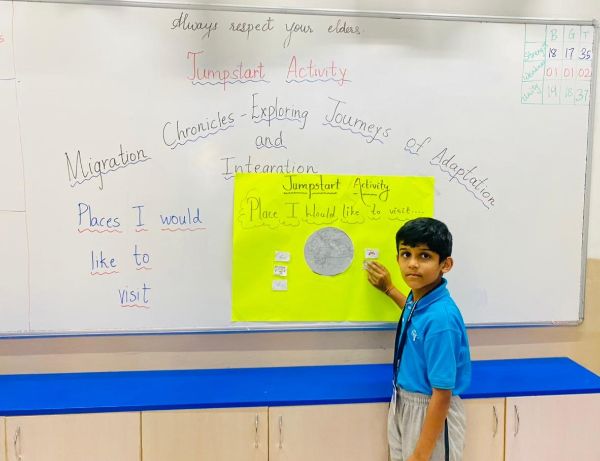 Always respect your elders.
Jumpstart Activity
Migration Chronicles - Exploring Journeys of Adaptation
and
Integration
Places I would
like to
visit
Jumpstart Activity
Place I would like to visit....
B G T
18 17 35
01 01 02
19 18 37